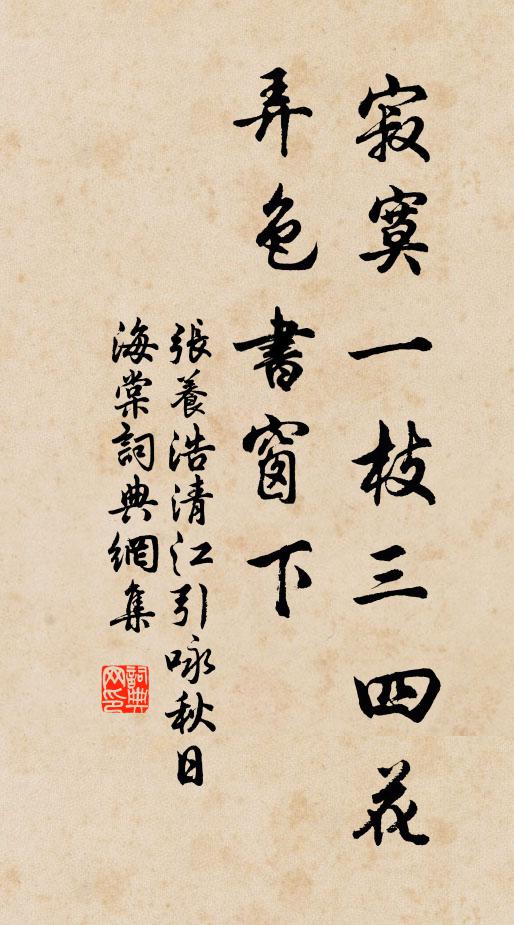 寂寞一枝三四花
弄色書窗下
張養浩清江引咏秋日
海棠詞典網集
詞典网印